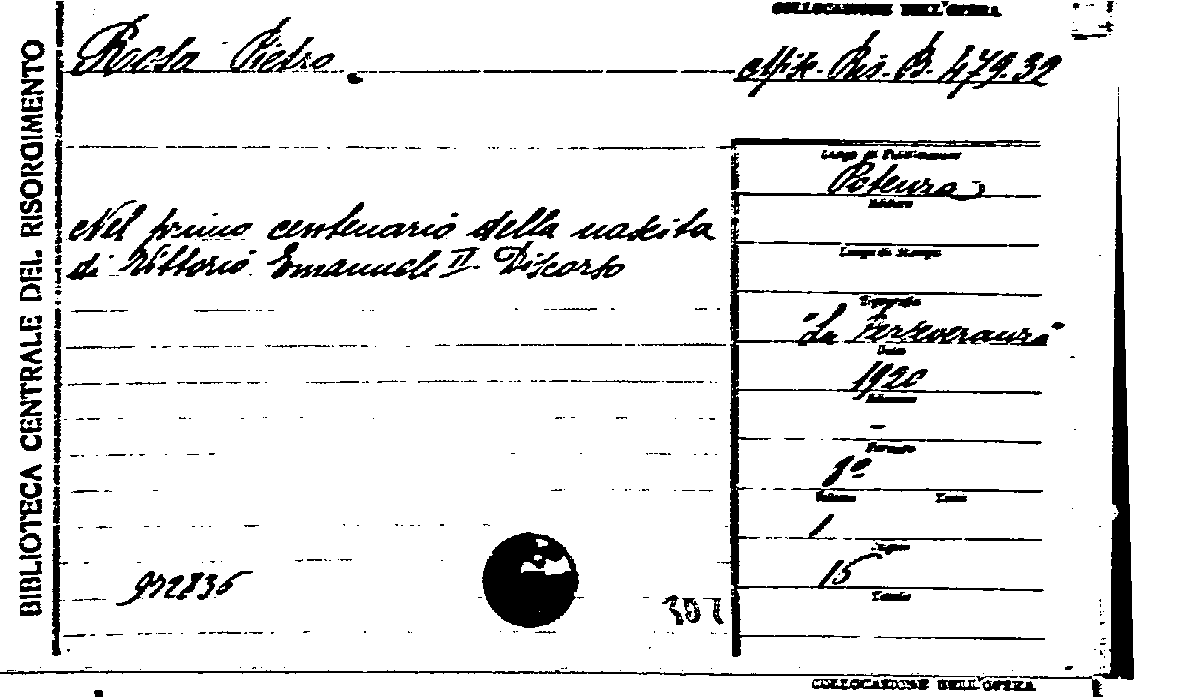 BIBLIOTECA CENTRALE DEL RISORGIMENTO
COLLOCAZIONE DELL'OPERA
Rosa Pietro
Misc. Ris. B. 479.32
Nel primo centenario della nascita
di Vittorio Emanuele II. Discorso
Luogo di Pubblicazione
Potenza
Editore
Luogo di Stampa
Tipografia
"La Perseveranza"
Data
1920
-
Formato
8º
Volume
1
Pagine
15
Tavole
307
COLLOCAZIONE DELL'OPERA